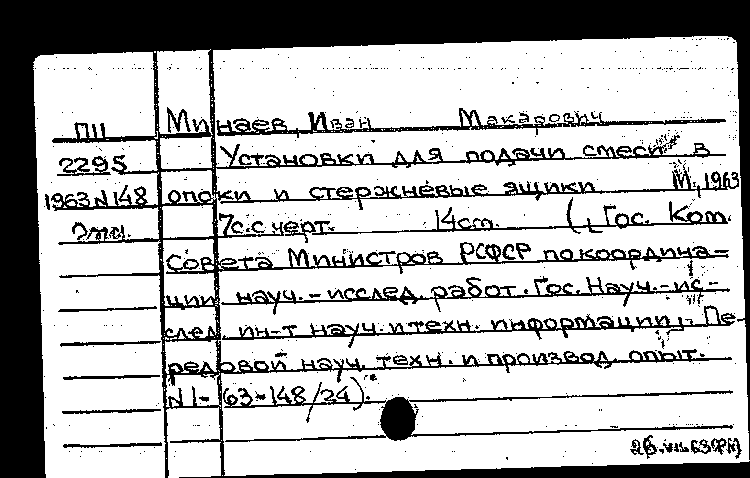 П11 Минаев, Иван Макарович
2295 Установки для подачи смеси в
1963 N148 опоки и стержневые ящики М., 1963
7с. с черт. 14см. (Гос. Ком.
Совета Министров РСФСР по координа-
ции науч.-исслед. работ. Гос. Науч.-ис-
след. ин-т науч. и техн. информации. Пе-
редовой науч. техн. и производ. опыт.
N 1-63-148/24).